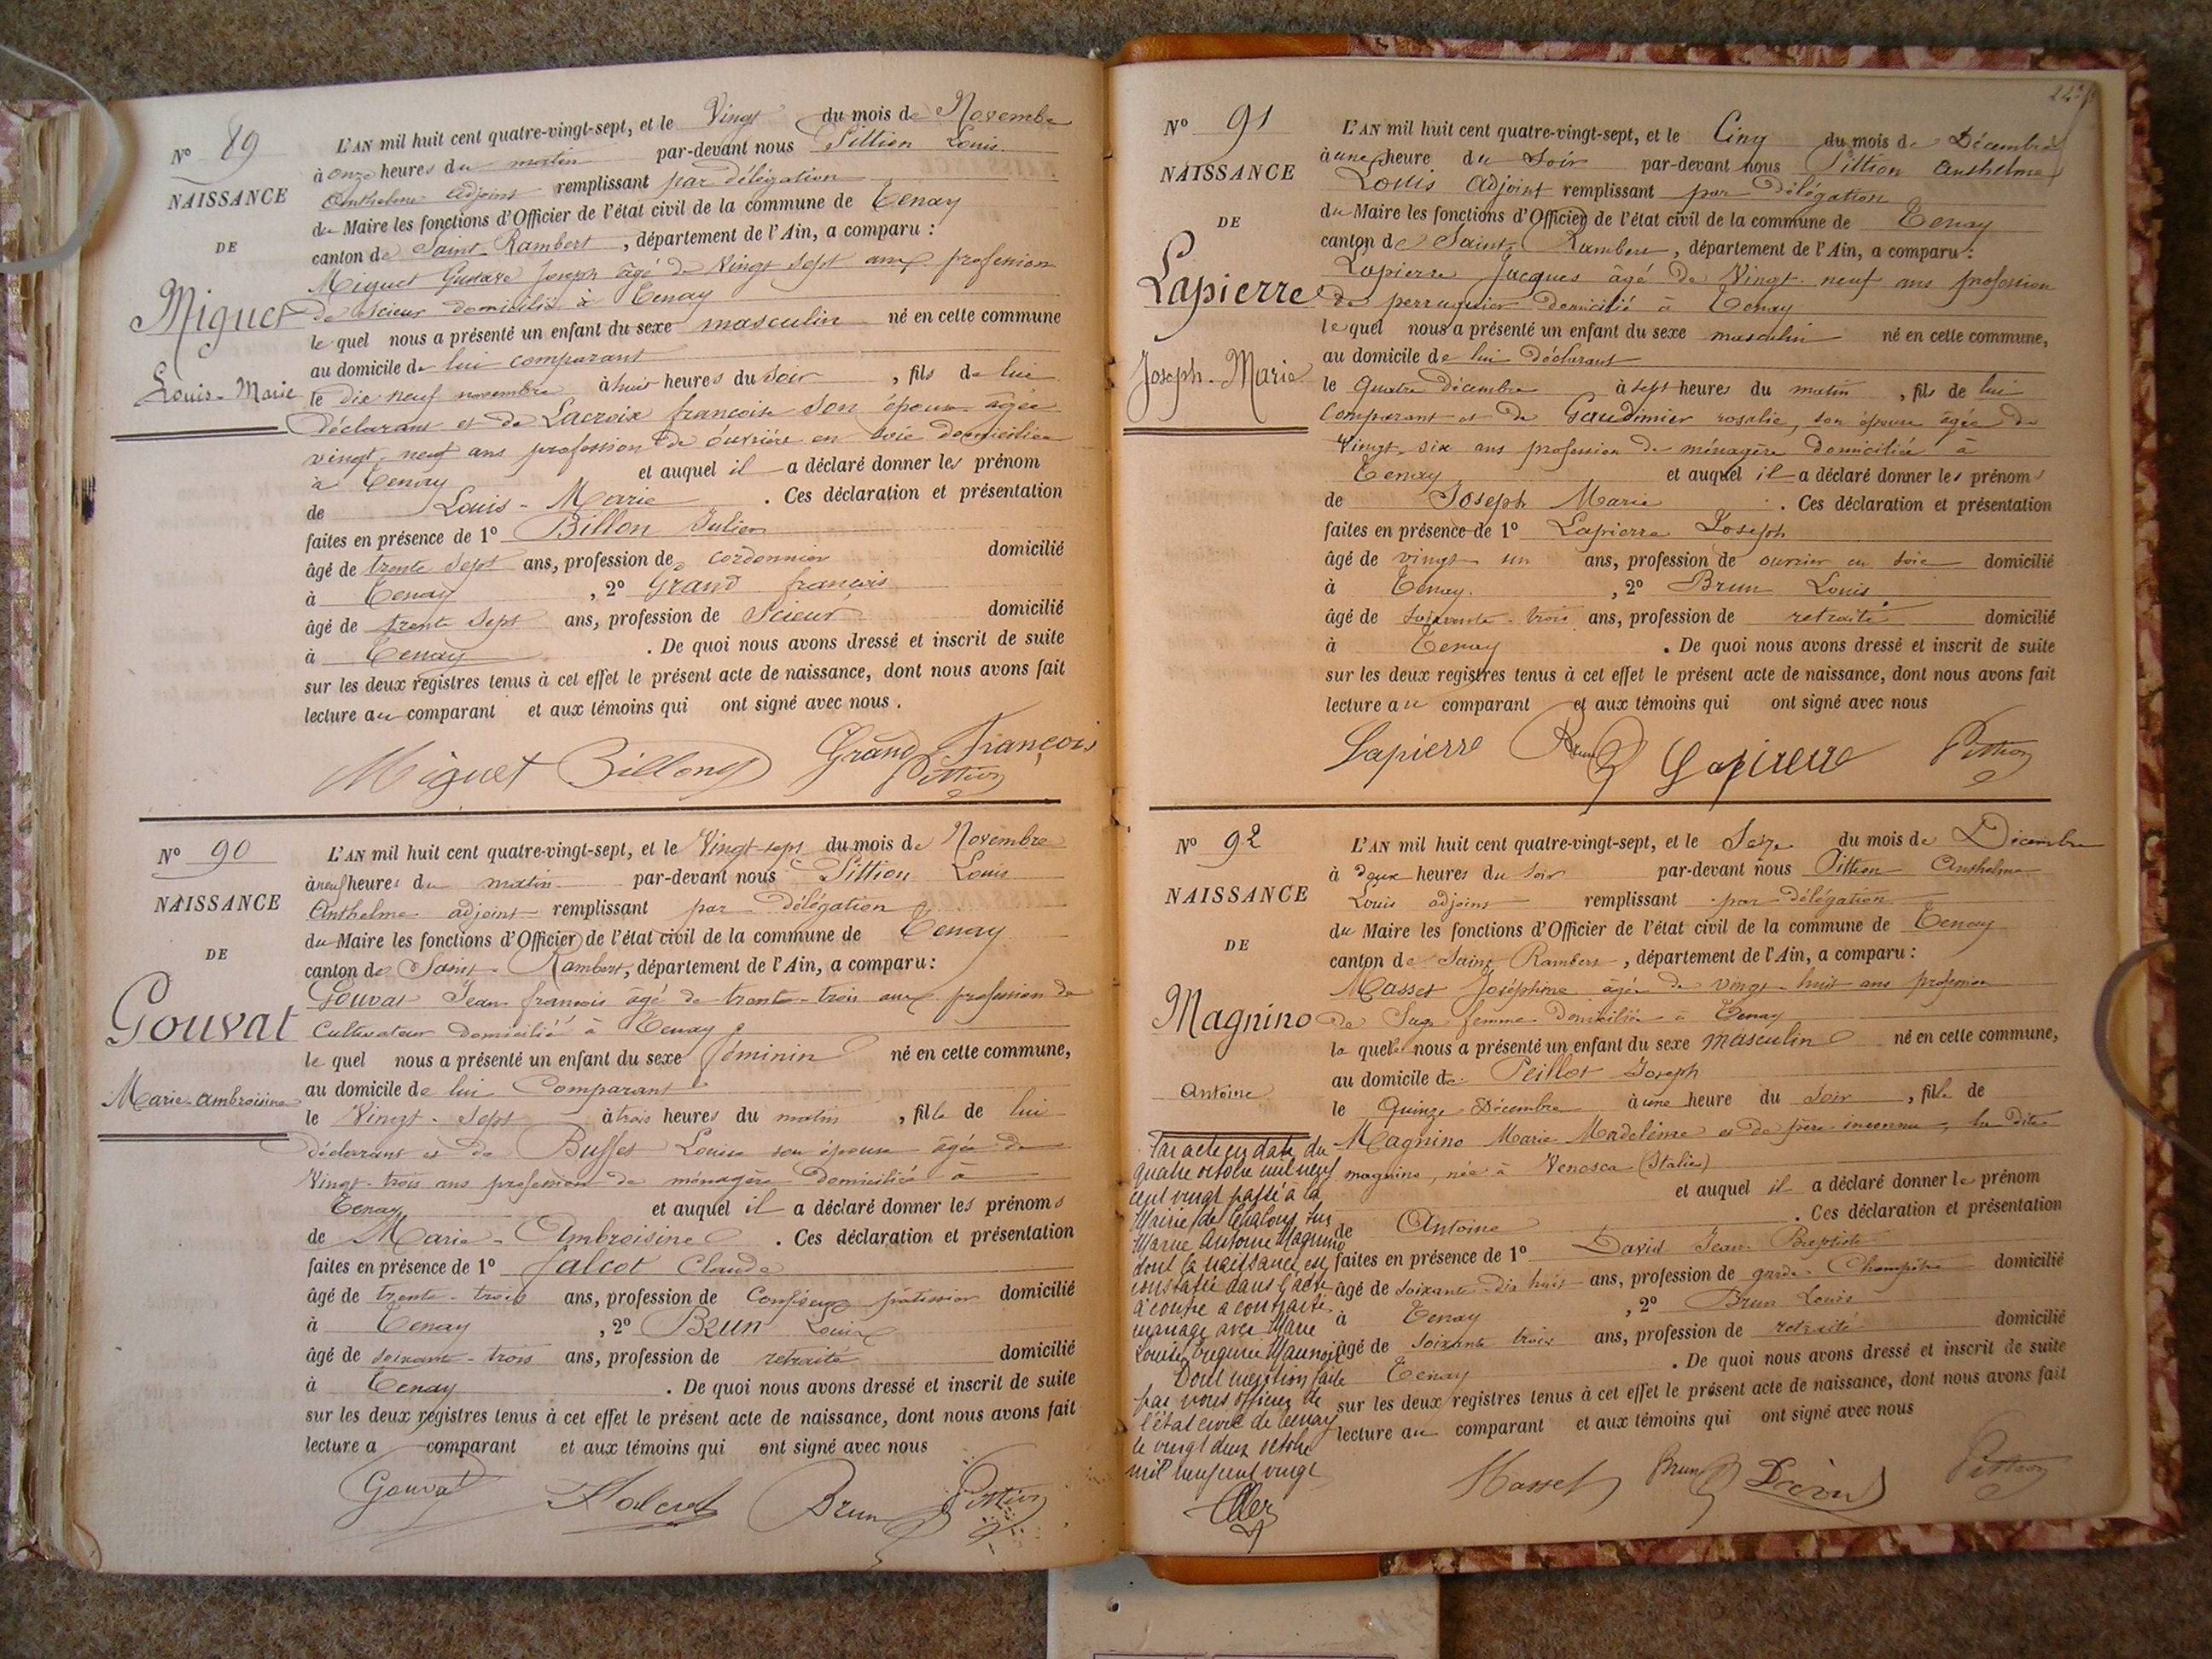 Nº 89
NAISSANCE
DE
Miguet
Louis-Marie
L'AN mil huit cent quatre-vingt-sept, et le Vingt du mois de Novembre
à onze heures du matin par-devant nous Pittion Louis
Anthelme adjoint remplissant par délégation
du Maire les fonctions d'Officier de l'état civil de la commune de Tenay
canton de Saint-Rambert, département de l'Ain, a comparu :
Miguet Gustave Joseph âgé de Vingt sept ans profession
de scieur domicilié à Tenay
le quel nous a présenté un enfant du sexe masculin né en cette commune
au domicile de lui comparant
le dix neuf novembre à huit heures du soir, fils de lui
déclarant et de Lacroix françoise son épouse âgée
vingt-neuf ans profession de ouvrière en soie domiciliée
à Tenay et auquel il a déclaré donner les prénom
de Louis-Marie. Ces déclaration et présentation
faites en présence de 1º Billon Julien
âgé de trente sept ans, profession de cordonnier domicilié
à Tenay, 2º Grand françois
âgé de trente sept ans, profession de scieur domicilié
à Tenay. De quoi nous avons dressé et inscrit de suite
sur les deux registres tenus à cet effet le présent acte de naissance, dont nous avons fait
lecture au comparant et aux témoins qui ont signé avec nous.
Miguet Billon Grand François
Pittion
Nº 90
NAISSANCE
DE
Gouvat
Marie-ambroisine
L'AN mil huit cent quatre-vingt-sept, et le Vingt-sept du mois de Novembre
à neuf heures du matin par-devant nous Pittion Louis
Anthelme adjoint remplissant par délégation
du Maire les fonctions d'Officier de l'état civil de la commune de Tenay
canton de Saint-Rambert, département de l'Ain, a comparu :
Gouvat Jean françois âgé de trente-trois ans profession de
Cultivateur domicilié à Tenay
le quel nous a présenté un enfant du sexe féminin né en cette commune,
au domicile de lui Comparant
le Vingt-sept à trois heures du matin, fille de lui
déclarant et de Buffet Louise son épouse âgée de
Vingt-trois ans profession de ménagère domiciliée à
Tenay et auquel il a déclaré donner les prénoms
de Marie-Ambroisine. Ces déclaration et présentation
faites en présence de 1º falcot Claude
âgé de trente-trois ans, profession de Confiseur patissier domicilié
à Tenay, 2º Brun Louis
âgé de soixante-trois ans, profession de retraité domicilié
à Tenay. De quoi nous avons dressé et inscrit de suite
sur les deux registres tenus à cet effet le présent acte de naissance, dont nous avons fait
lecture a comparant et aux témoins qui ont signé avec nous
Gouvat Falcot Brun Pittion
Nº 91
NAISSANCE
DE
Lapierre
Joseph-Marie
L'AN mil huit cent quatre-vingt-sept, et le Cinq du mois de Décembre
à une heure du soir par-devant nous Pittion Anthelme
Louis adjoint remplissant par délégation
du Maire les fonctions d'Officier de l'état civil de la commune de Tenay
canton de Saint-Rambert, département de l'Ain, a comparu :
Lapierre Jacques âgé de Vingt-neuf ans profession
de perruquier domicilié à Tenay
le quel nous a présenté un enfant du sexe masculin né en cette commune,
au domicile de lui déclarant
le quatre décembre à sept heures du matin, fils de lui
Comparant et de Gaudinier rosalie, son épouse âgée de
Vingt-six ans profession de ménagère domiciliée à
Tenay et auquel il a déclaré donner les prénoms
de Joseph Marie. Ces déclaration et présentation
faites en présence de 1º Lapierre Joseph
âgé de vingt un ans, profession de ouvrier en soie domicilié
à Tenay, 2º Brun Louis
âgé de soixante-trois ans, profession de retraité domicilié
à Tenay. De quoi nous avons dressé et inscrit de suite
sur les deux registres tenus à cet effet le présent acte de naissance, dont nous avons fait
lecture au comparant et aux témoins qui ont signé avec nous
Lapierre Brun Lapierre Pittion
Nº 92
NAISSANCE
DE
Magnino
Antoine
L'AN mil huit cent quatre-vingt-sept, et le Seize du mois de Décembre
à deux heures du soir par-devant nous Pittion Anthelme
Louis adjoint remplissant par délégation
du Maire les fonctions d'Officier de l'état civil de la commune de Tenay
canton de Saint Rambert, département de l'Ain, a comparu :
Masset Joséphine âgée de vingt-huit ans profession
de Sage femme domiciliée à Tenay
la quelle nous a présenté un enfant du sexe masculin né en cette commune,
au domicile de Peillot Joseph
le Quinze Décembre à une heure du soir, fils de
Magnino Marie Madeleine et de père inconnu, la dite
magnino, née à Venosca (Italie)
et auquel il a déclaré donner le prénom
de Antoine. Ces déclaration et présentation
faites en présence de 1º David Jean-Baptiste
âgé de soixante-dix huit ans, profession de garde-Champêtre domicilié
à Tenay, 2º Brun Louis
âgé de soixante trois ans, profession de retraité domicilié
Tenay. De quoi nous avons dressé et inscrit de suite
sur les deux registres tenus à cet effet le présent acte de naissance, dont nous avons fait
lecture au comparant et aux témoins qui ont signé avec nous
Masset Brun David Pittion
Par acte en date du
quatre octobre mil neuf
cent vingt passé à la
Mairie de Chalons sur
Marne Antoine Magnino
dont la naissance est
constatée dans l'acte
ci contre a contracté
mariage avec Marie
Louise Virginie
Dont mention faite
par nous officier de
l'état civil de Tenay
le vingt deux octobre
mil neuf cent vingt